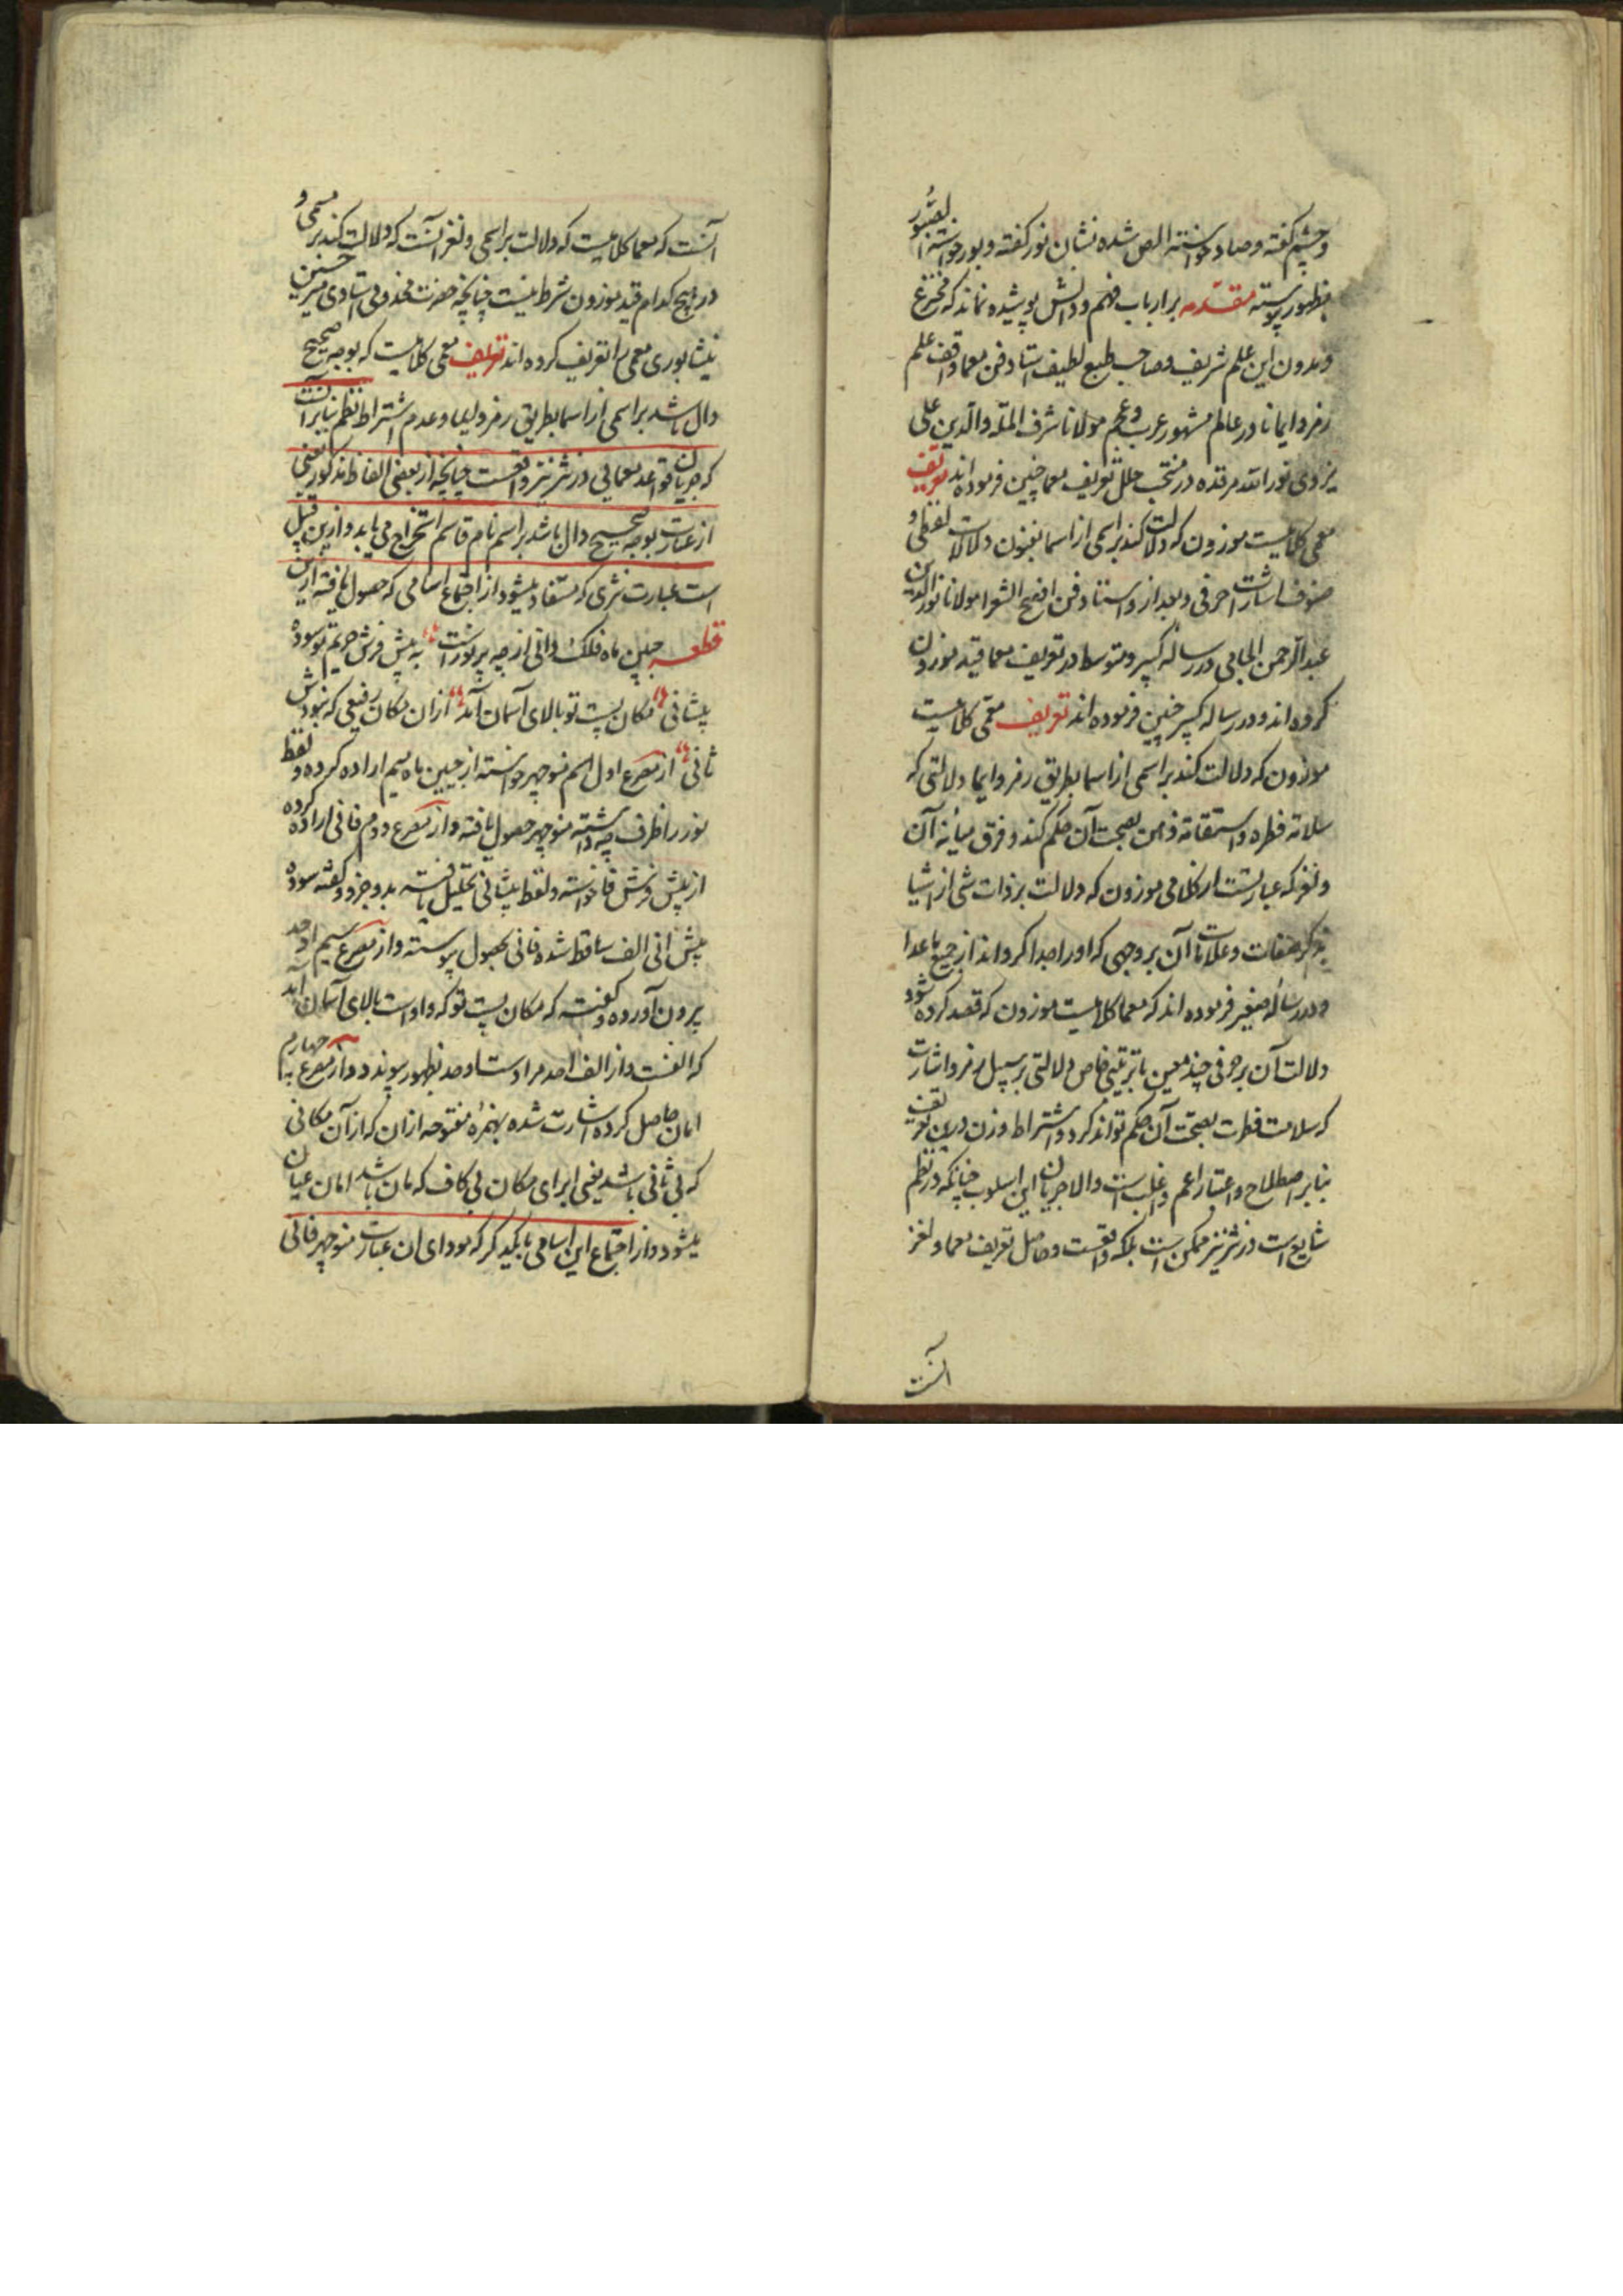 و چشم گفته و صاد خواسته الص شده نشان نور گفته و بور خواسته
بظهور پیوسته مقدمه بر ارباب فهم و دانش پوشیده نماند که مخترع
و مدون این علم شریف و صاحب طبع لطیف استاد فن معما واقف علم
رمز و ایما نادر عالم مشهور عرب و عجم مولانا شرف المله والدین علی
یزدی نور الله مرقده در منتخب حلل تعریف معما چنین فرموده اند تعریف
معمی کلامیست موزون که دلالت کند بر اسمی از اسما بفنون دلالات لفظی و
صنوف اشارات حرفی و بعد از و استاد فن افصح الشعرا مولانا نور الدین
عبد الرحمن الجامی در رساله کبیر و متوسط در تعریف معما قید موزون
کرده اند و در رساله کبیر چنین فرموده اند تعریف معمی کلامیست
موزون که دلالت کند بر اسمی از اسما بطریق رمز و ایما دلالتی که
سلامة فطره و استقامة ذهن بصحت آن حکم کند و فرق میانه آن
و لغز که عبارتست از کلامی موزون که دلالت بر ذات شی از اشیا
بذکر صفات و علامات آن بر وجهی که او را جدا گرداند از جمیع ما عدا
و در رساله صغیر فرموده اند که معما کلامیست موزون که قصد کرده شود
دلالت آن بر حرفی چند معین با ترتیبی خاص دلالتی بر سبیل رمز و اشارت
که سلامت فطرت بصحت آن حکم تواند کرد و اشتراط وزن درین تعریف
بنابر اصطلاح و اعتبار اعم و اغلب است والا جریان این اسلوب چنانکه در نظم
شایع است در نثر نیز ممکن است بلکه واقعست و حاصل تعریف معما و لغز
آنست
آنست که معما کلامیست که دلالت بر اسمی و لغز آنست که دلالت کند بر مسمی و
در هیچ کدام قید موزون شرط نیست چنانچه حضرت مخدومی استادی میر حسین
نیشابوری معمی را تعریف کرده اند تعریف معمی کلامیست که بوجه صحیح
دال باشد بر اسمی از اسما بطریق رمز و ایما و عدم اشتراط نظم بنابر آنست
که جریان قواعد معمایی در نثر نیز واقعست چنانچه از بعضی الفاظ مذکور یعنی
از عبارت بوجه صحیح دال باشد بر اسم نام قاسم استخراج می یابد و ازین قبیل
است عبارت نثری که مستفاد میشود از اجتماع اسامی که حصول یافته ازین
قطعه جبین ماه فلک دانی از چه پر نور است به پیش فرش حریم تو سوده
پیشانی مکان پست تو بالای آسمان آمد از آن مکان رفیعی که نبودش
ثانی از مصرع اول اسم منوچهر خواسته از جبین ماه میم اراده کرده و لفظ
نور را ظرف چه داشته منوچهر حصول یافته و از مصرع دوم فانی اراده کرده
از پیش فرش فا خواسته و لفظ پیشانی تحلیل یافته بدو جزو و گفته سوده
پیش انی الف ساقط شده فانی بحصول پیوسته و از مصرع سیم احد
برون آورده و گفته که مکان پست تو که واو است بالای آسمان آید
که الفست و از الف احد مراد است او حد بظهور پیوندد و از مصرع چهارم
امان حاصل کرده اشارت شده بهمزه مفتوحه از آن که از آن مکانی
که بی ثانی باشد یعنی ابرای مکان بی کاف که مان باشد امان عیان
میشود و از اجتماع این اسامی با یکدیگر که مودای ان عبارت منوچهر فانی